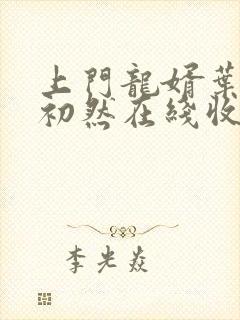 上門龍婿葉
初然在綫收
李光焱